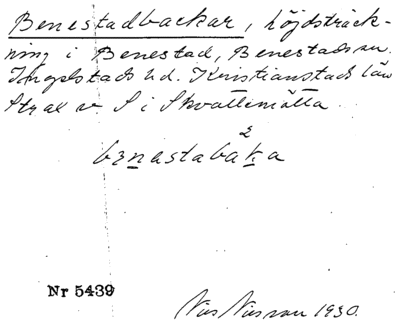 Benestadbackar, höjdsträck-
ning i Benestad, Benestads sn.
Ingelstads hd. Kristianstads län
Strax v. S i Skvattemölla
2
bɛnastabaka
Nr 5439
Nils Nilsson 1930.